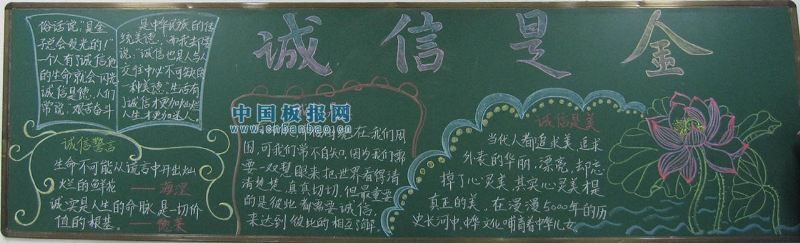 诚信是金
俗话说：“是金
子总会发光的！”
一个人有了诚信他
的生命就会闪光
诚信是德，人们
常说：艰苦奋斗
是中华民族的传
统美德。
说，诚信也是人与人
交往中必不可缺的
一种美德。生活有
了诚信才更加灿烂
人生才更加迷人
中国板报网
www.cnbanbao.cn
诚信誓言
生命不可能从谎言中开出灿
烂的鲜花
——海涅
诚实是人生的命脉，是一切价
值的根基。
在我们周
围，可我们常不自知。因为我们需
要一双慧眼来把世界看得清
清楚楚，真真切切，但最重要
的是彼此都需要诚信，
来达到彼此的相互谅解
诚信是美
当代人都追求美，追求
外表的华丽、漂亮，却忘
掉了心灵美，其实心灵美才是
真正的美，在漫漫5000年的历
史长河中，中华文化哺育着中华儿女。